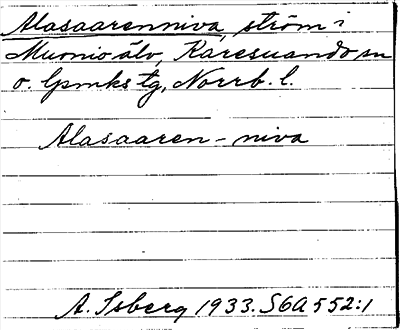 Alasaarenniva, ström i
Muonio älv, Karesuando sn
o. lpmks tg, Norrb. l.
Alasaaren-niva
A. Isberg 1933. SGA 552:1